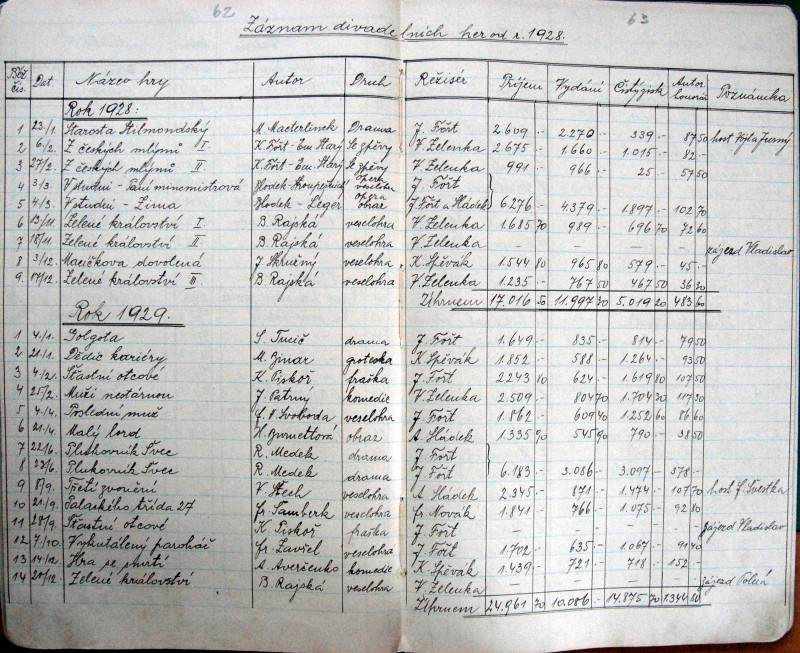 62
63
Záznam divadelních her od r. 1928.
Běž. čís. Dat. Název hry Autor Druh Režisér Příjem Vydání Čistý zisk Autor honorář Poznámka
Rok 1928:
1 23./1. Starosta Stilmondský M. Maeterlinck Drama J. Fořt 2.609 .- 2.270 .- 339 .- 87 50 host Vojta
2 6/2. Z českých mlýnů I. K. Fořt - Em. Starý Se zpěvy V. Zelenka 2.675 .- 1.660 .- 1.015 .- 82 .-
3 27/2. Z českých mlýnů II K. Fořt - Em. Starý Se zpěvy V. Zelenka 991 .- 966 .- 25 .- 57 50
4 3/3. V studni - Paní mincmistrová Blodek - Stroupežnický opera veselohra J. Fořt
5 4/3. V studni - Zima Blodek - Leger opera obraz J. Fořt a Sládek 6276 .- 4.379 .- 1.897 .- 102 70
6 13/11 Zelené království I. B. Rajská veselohra V. Zelenka 1.685 70 989 .- 696 70 72 60
7 18/11 Zelené království II B. Rajská veselohra V. Zelenka – – – – zájezd Vladislav
8 3/12. Macíčkova dovolená J. Skružný veselohra K. Spěvák 1.544 80 965 80 579 .- 45 .-
9. 17/12. Zelené království III B. Rajská veselohra V. Zelenka 1.235 .- 767 50 467 50 36 30
Úhrnem 17.016 50 11.997 30 5.019 20 483 60
Rok 1929.
1 4./1. Golgota S. Tucić drama J. Fořt 1.649 .- 835 .- 814 .- 79 50
2 21/1. Dědic kariéry M. groteska K. Spěvák 1.852 .- 588 .- 1.264 .- 93 50
3 4/2. Šťastní otcové K. Piskoř fraška J. Fořt 2243 80 624 .- 1.619 80 107 50
4 25/2. Muži nestárnou J. Patrný komedie V. Zelenka 2.509 .- 804 70 1.704 30 117 30
5 4./4. Poslední muž F. X. Svoboda veselohra J. Fořt 1.862 .- 609 40 1.252 60 86 60
6 21/4. Malý lord obraz A. Sládek 1.335 90 545 90 790 .- 38 50
7 22/6. Plukovník Švec R. Medek drama J. Fořt
8 23/6. Plukovník Švec R. Medek drama J. Fořt 6.183 .- 3.086 .- 3.097 .- 378 .-
9 8/9. Třetí zvonění V. Štech veselohra A. Sládek 2.345 .- 871 .- 1.474 .- 107 70 host
10 21/9. Palackého třída 27 Fr. Šamberk veselohra Fr. Novák 1.841 .- 766 .- 1.075 .- 92 80
11 28/9. Šťastní otcové K. Piskoř fraška J. Fořt – – – – zájezd Vladislav
12 7/10. Vykutálený paroháč Fr. Zavřel veselohra J. Fořt 1.702 .- 635 .- 1.067 .- 91 40
13 14/12. Hra se smrtí A. Averčenko komedie K. Spěvák 1.439 .- 721 .- 718 .- 152 .-
14 21/12. Zelené království B. Rajská veselohra V. Zelenka – – – – zájezd Polná
Úhrnem 24.961 70 10.086 .- 14.875 70 1.344 80